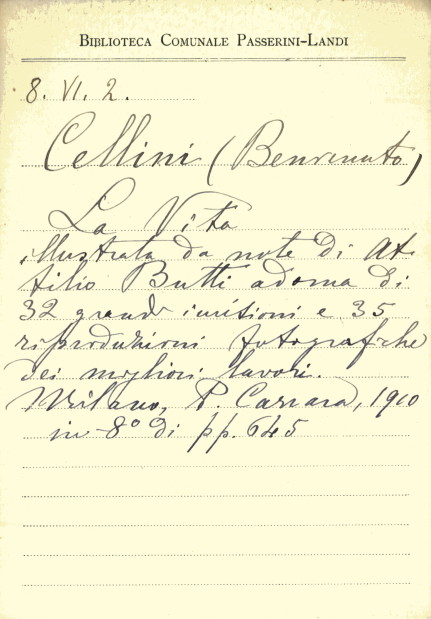 BIBLIOTECA COMUNALE PASSERINI-LANDI
8. VI. 2.
Cellini (Benvenuto)
La Vita
illustrata da note di At-
tilio Butti adorna di
32 grandi incisioni e 35
riproduzioni fotografiche
dei migliori lavori.
Milano, P. Carrara, 1910
in-8° di pp. 645